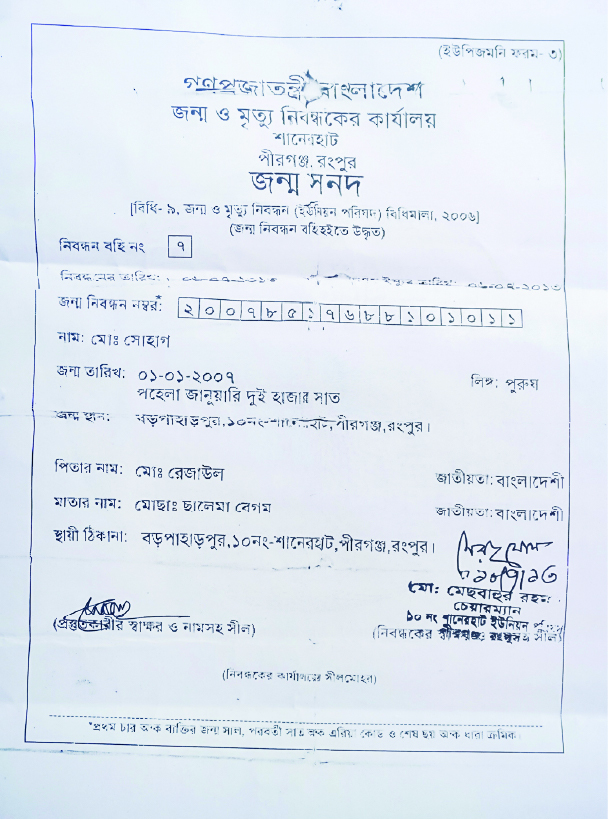 (ইউপিজমনি ফরম- ৩)
গণপ্রজাতন্ত্রী বাংলাদেশ
জন্ম ও মৃত্যু নিবন্ধকের কার্যালয়
শানেরহাট
পীরগঞ্জ, রংপুর
জন্ম সনদ
[বিধি- ৯, জন্ম ও মৃত্যু নিবন্ধন (ইউনিয়ন পরিষদ) বিধিমালা, ২০০৬]
(জন্ম নিবন্ধন বহিহইতে উদ্ধৃত)
নিবন্ধন বহি নং ৭
নিবন্ধনের তারিখ: তারিখ:
জন্ম নিবন্ধন নম্বর:* ২০০৭৮৫১৭৬৮৮১০১০১১
নাম: মোঃ সোহাগ
জন্ম তারিখ: ০১-০১-২০০৭ লিঙ্গ: পুরুষ
পহেলা জানুয়ারি দুই হাজার সাত
জন্ম স্থান: বড়পাহাড়পুর,১০নং-শানেরহাট,পীরগঞ্জ,রংপুর।
পিতার নাম: মোঃ রেজাউল জাতীয়তা: বাংলাদেশী
মাতার নাম: মোছাঃ ছালেমা বেগম জাতীয়তা: বাংলাদেশী
স্থায়ী ঠিকানা: বড়পাহাড়পুর,১০নং-শানেরহাট,পীরগঞ্জ,রংপুর।
মো: মেছবাহুর রহমান
চেয়ারম্যান
১০ নং শানেরহাট ইউনিয়ন
(প্রস্তুতকারীর স্বাক্ষর ও নামসহ সীল) (নিবন্ধকের সীল)
(নিবন্ধকের কার্যালয়ের সীলমোহর)
*প্রথম চার অংক ব্যক্তির জন্ম সাল, পরবর্তী সাত অংক এরিয়া কোড ও শেষ ছয় অংক ধারা ক্রমিক।